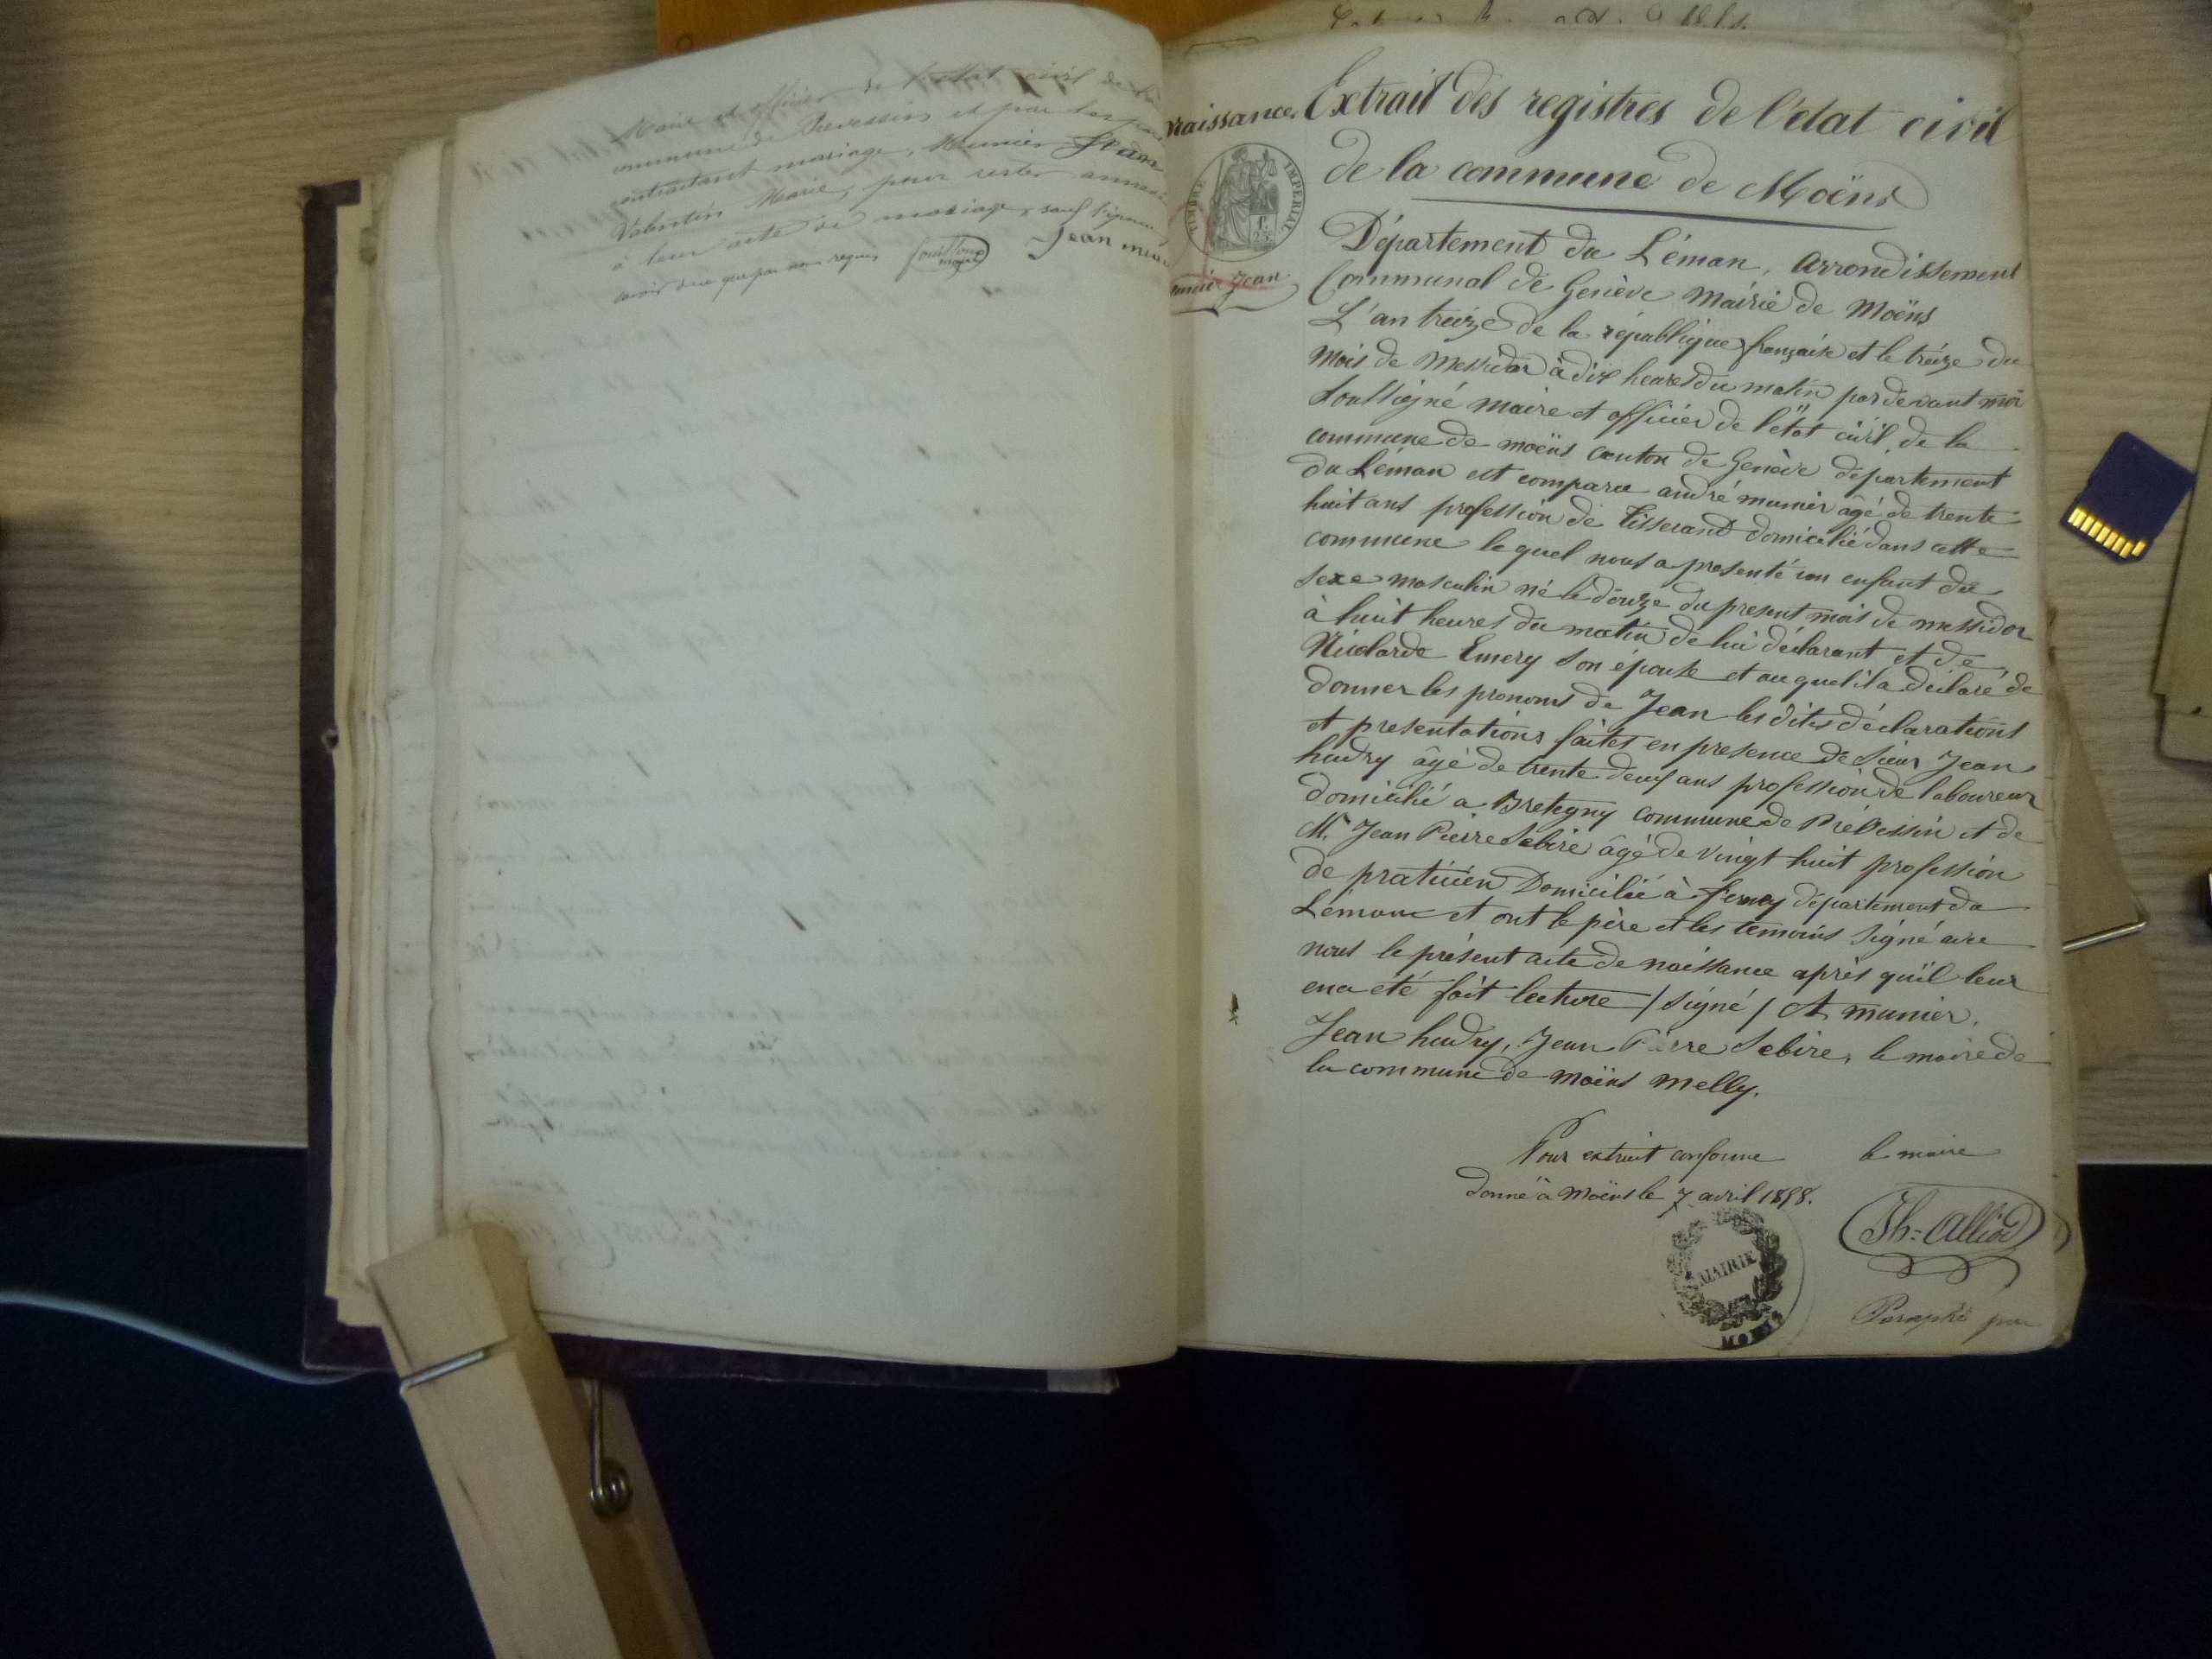 Maire et officier de l'état civil de la
commune de Prevessin et par les
contractant mariage, Munier Jean
Valentin Marie, pour rester annexé
à leur acte de mariage, sauf
Jean
naissance.
Extrait des registres de l'état civil
de la commune de Moëns
TIMBRE IMPERIAL
Jean
Département du Léman, Arrondissement
Communal de Genève Mairie de Moëns
L'an treize de la république française et le treize du
mois de Messidor à dix heures du matin par devant moi
soussigné maire et officier de l'état civil de la
commune de moëns canton de Genève département
du Léman est comparu andré munier âgé de trente
huit ans profession de Tisserand domicilié dans cette
commune lequel nous a presenté un enfant du
sexe masculin né le douze du present mois de messidor
à huit heures du matin de lui déclarant et de
Nicolarde Emery son épouse et auquel il a déclaré de
donner les prenoms de Jean les dites déclarations
et presentations faites en presence de Sieur Jean
hudry âgé de trente deux ans profession de laboureur
domicilié a Bretegny commune de Prévessin et de
Mr. Jean Pierre Sebire âgé de vingt huit profession
de praticien Domicilié à ferney département du
Léman et ont le père et les temoins signé avec
nous le présent acte de naissance après qu'il leur
en a eté fait lecture / signé / At munier,
Jean hudry, Jean Pierre Sebire, le maire de
la commune de moëns melly.
Pour extrait conforme le maire
donné à Moëns le 7 avril 1858.
Jh= Alliod
MAIRIE
MOËNS
Paraphé par